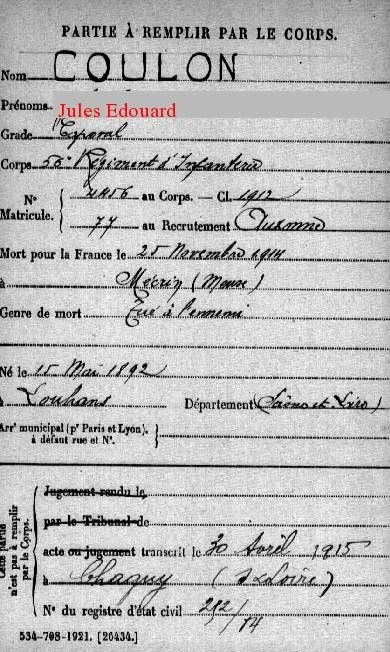 PARTIE À REMPLIR PAR LE CORPS.
Nom COULON
Prénoms Jules Edouard
Grade Caporal
Corps 56e Régiment d'Infanterie
N° Matricule. 4456 au Corps. — Cl. 1912
77 au Recrutement Auxonne
Mort pour la France le 25 Novembre 1914
à Mécrin (Meuse)
Genre de mort Tué à l'ennemi
Né le 15 Mai 1892
à Louhans Département (Saône et Loire)
Arrt municipal (pr Paris et Lyon), à défaut rue et N°.
Cette partie n'est pas à remplir par le Corps.
Jugement rendu le
par le Tribunal de
acte ou jugement transcrit le 30 Avril 1915
à Chagny (S Loire)
N° du registre d'état civil 212/14
534-708-1921. [26434.]